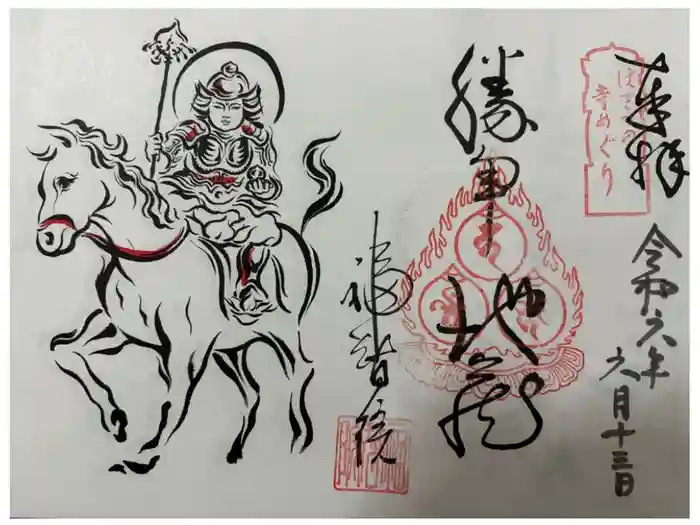 奉拝
ぼさつの
寺めぐり
令和六年
六月十三日
勝軍地蔵
福智院